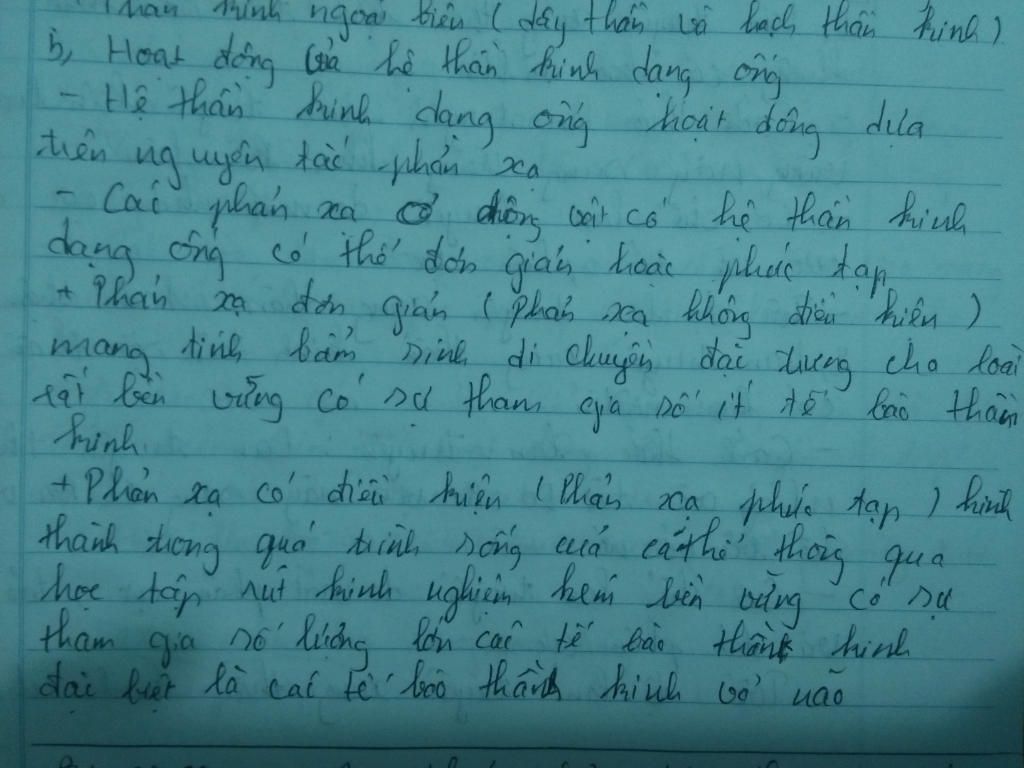 thần kinh ngoại biên (dây thần và hạch thần kinh)
b, Hoạt động của hệ thần kinh dạng ống
- Hệ thần kinh dạng ống hoạt động dựa
trên nguyên tắc phản xạ
- Các phản xạ ở động vật có hệ thần kinh
dạng ống có thể đơn giản hoặc phức tạp
+ Phản xạ đơn giản (Phản xạ không điều kiện)
mang tính bẩm sinh di chuyền đặc trưng cho loài
rất bền vững có sự tham gia số ít tế bào thần
kinh
+ Phản xạ có điều kiện (Phản xạ phức tạp) hình
thành trong quá trình sống của cá thể thông qua
học tập rút kinh nghiệm kém bền vững có sự
tham gia số lượng lớn các tế bào thần kinh
đặc biệt là các tế bào thần kinh vỏ não